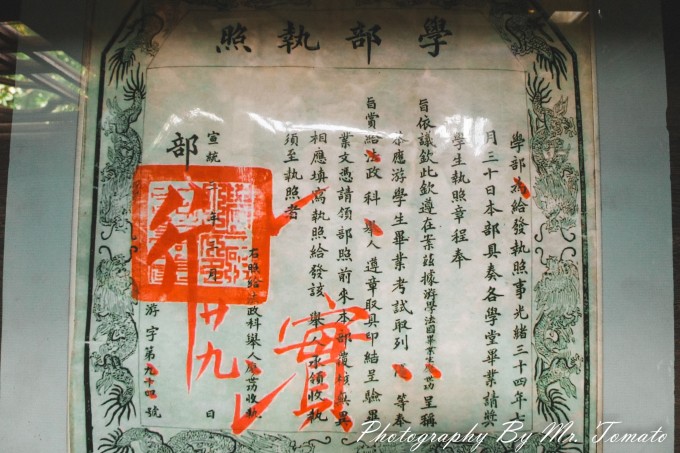 學部執照
學部為給發執照事光緒三十四年七
月三十日本部具奏各學堂畢業請獎
學生執照章程奉
旨依議欽此欽遵在案茲據游學法國畢業生 功呈稱
應游學生畢業考試取列 等奉
旨賞給法政科舉人遵章取具印結呈驗畢
業文憑請領部照前來本部覆核無異
相應填寫執照給發該舉人承領收執
須至執照者
右照給法政科舉人 功收執
宣統 年 月 日
部
廿九
游字第九十四號
實
行
Photography By Mr. Tomato